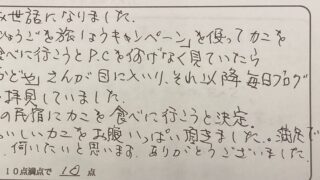 お世話になりました。
ひょうごを旅しようキャンペーン」を使ってカニを
食べに行こうとP.Cを何げなく見ていたら
かどや」さんが目に入り、それ以降毎日ブログ
拝見していました。
の民宿にカニを食べに行こうと決定.
いしいカニをお腹いっぱい頂きました。満足で
伺いたいと思います。ありがとうございました。
10点満点で 10 点